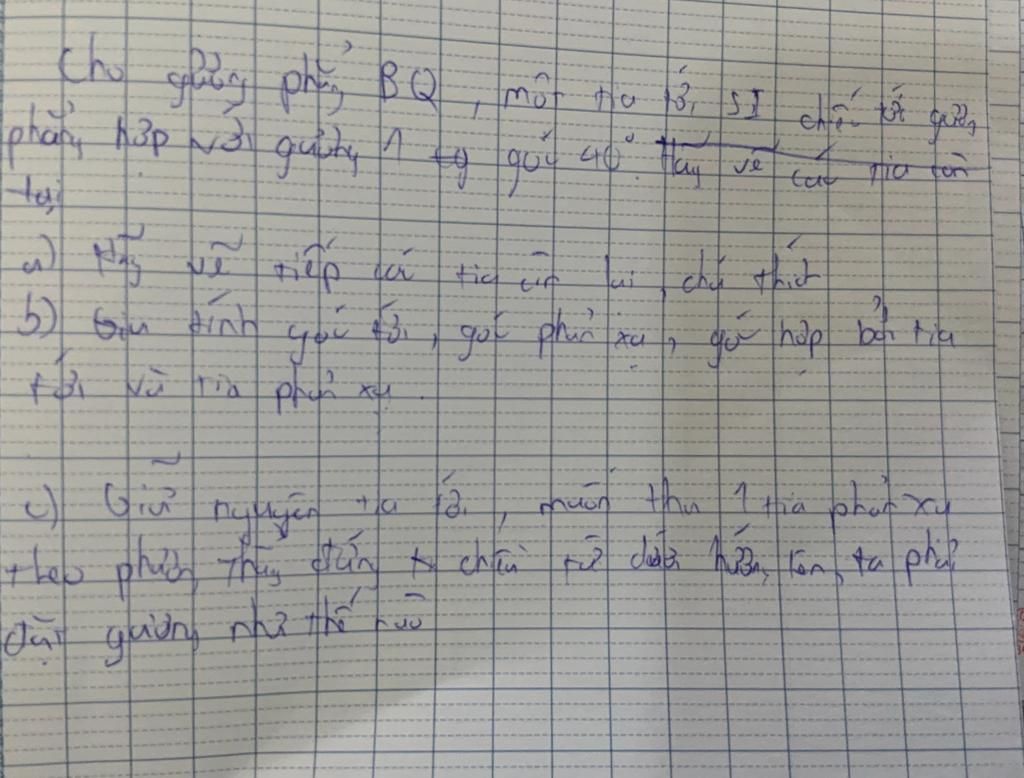 Cho gương phẳng BQ, một tia tới SI chiếu tới gương
phẳng hợp với gương 1 góc 40°. Hãy vẽ các tia còn
lại
a) Hãy vẽ tiếp các tia còn lại, chú thích
b) tính góc tới, góc phản xạ, góc hợp bởi tia
tới và tia phản xạ.
c) Giữ nguyên tia tới, muốn thu 1 tia phản xạ
theo phương thẳng đứng chiều từ dưới hướng lên, ta phải
đặt gương như thế nào